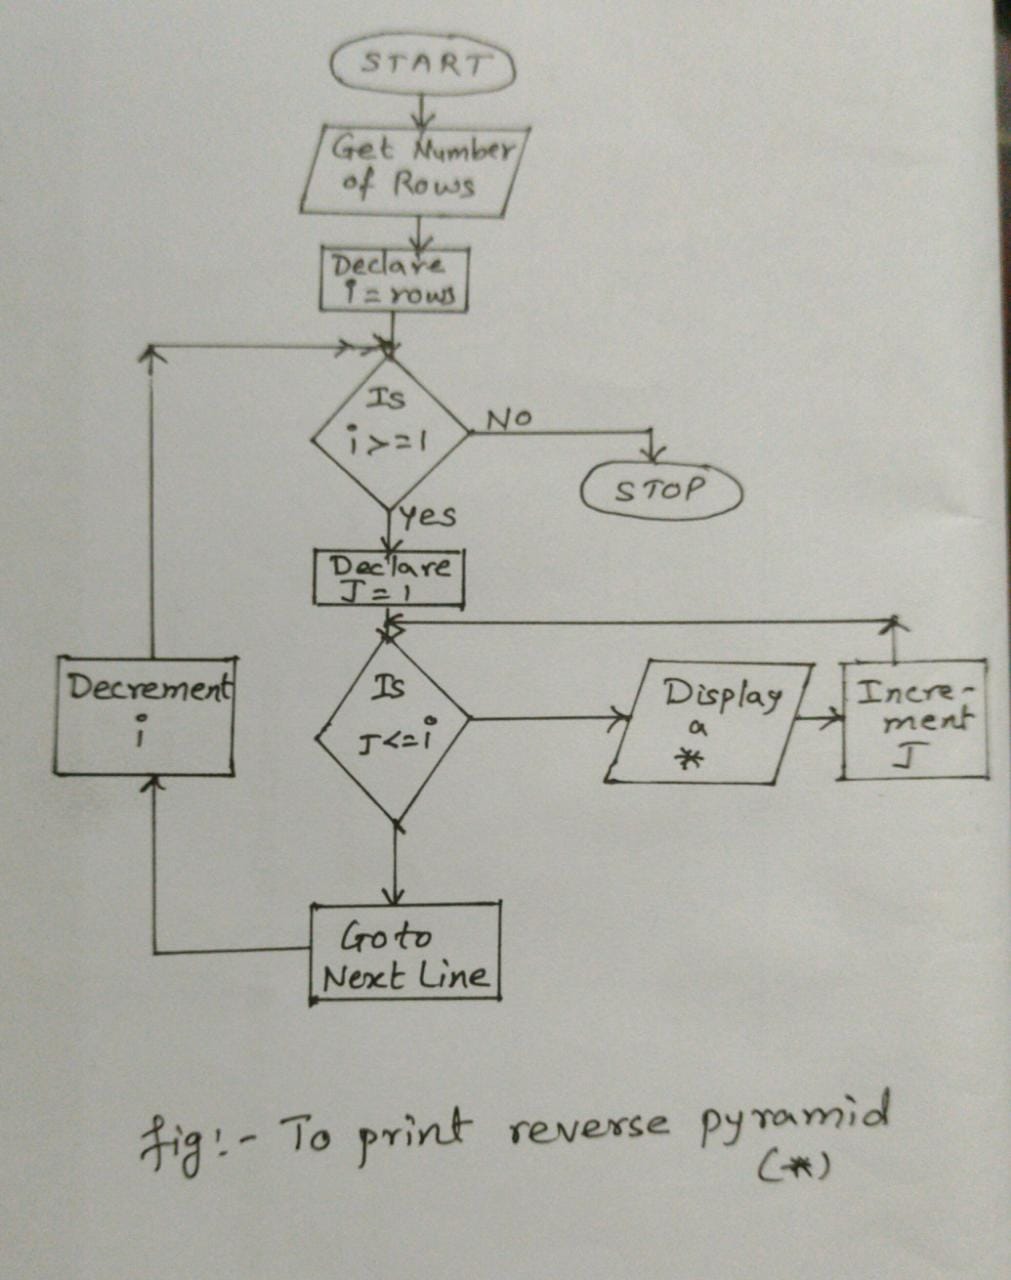 START
Get Number
of Rows
Declare
i = rows
Is
i >= 1
NO
STOP
Yes
Declare
J = 1
Is
J <= i
Display
a
*
Incre-
ment
J
Go to
Next Line
Decrement
i
fig:- To print reverse pyramid
(*)